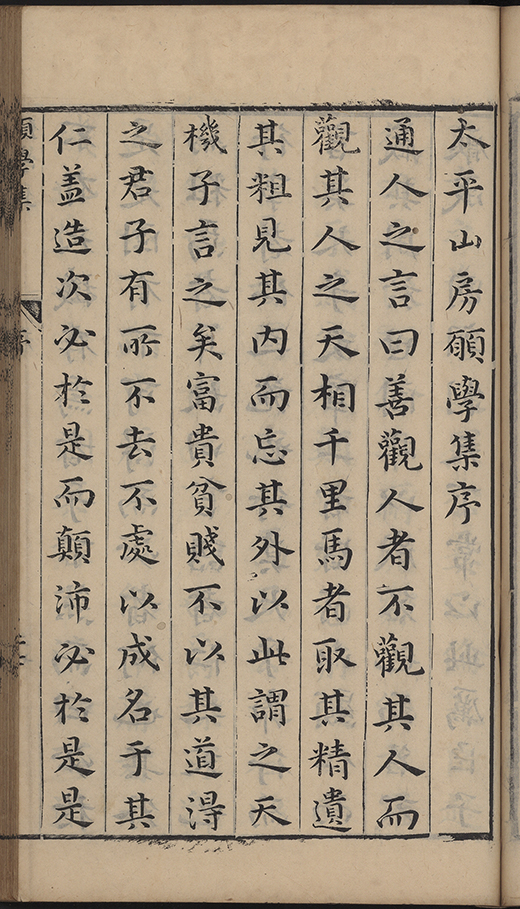 太平山房願學集序
通人之言曰善觀人者不觀其人而
觀其人之天相千里馬者取其精遺
其粗見其内而忘其外以此謂之天
機子言之矣富貴貧賤不以其道得
之君子有所不去不處以成名于其
仁盖造次必於是而顛沛必於是是
願學集
序